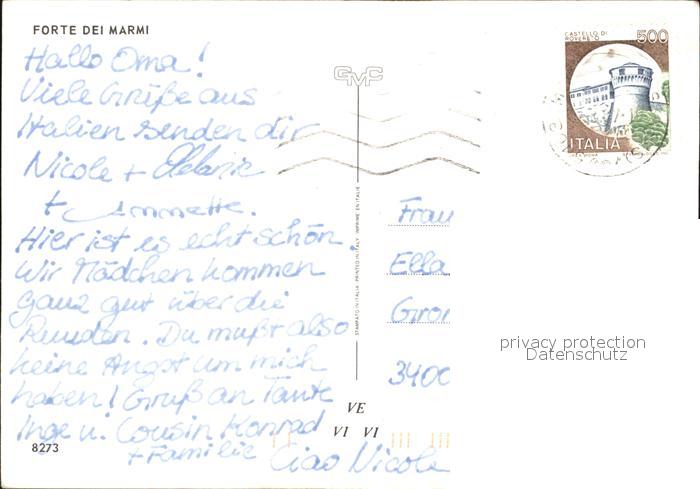 FORTE DEI MARMI
Hallo Oma!
Viele Grüße aus
Italien senden dir
Nicole + Melanie
+ Annette.
Hier ist es echt schön.
Wir Mädchen kommen
ganz gut über die
Runden. Du mußt also
keine Angst um mich
haben! Gruß an Tante
Inge u. Cousin Konrad
+ Familie Ciao Nicole
8273
GMC
STAMPATO IN ITALIA PRINTED IN ITALY IMPRIMÉ EN ITALIE
VE
VI VI
CASTELLO DI
ROVERETO
500
ITALIA
Frau
Ella
3400
privacy protection
Datenschutz